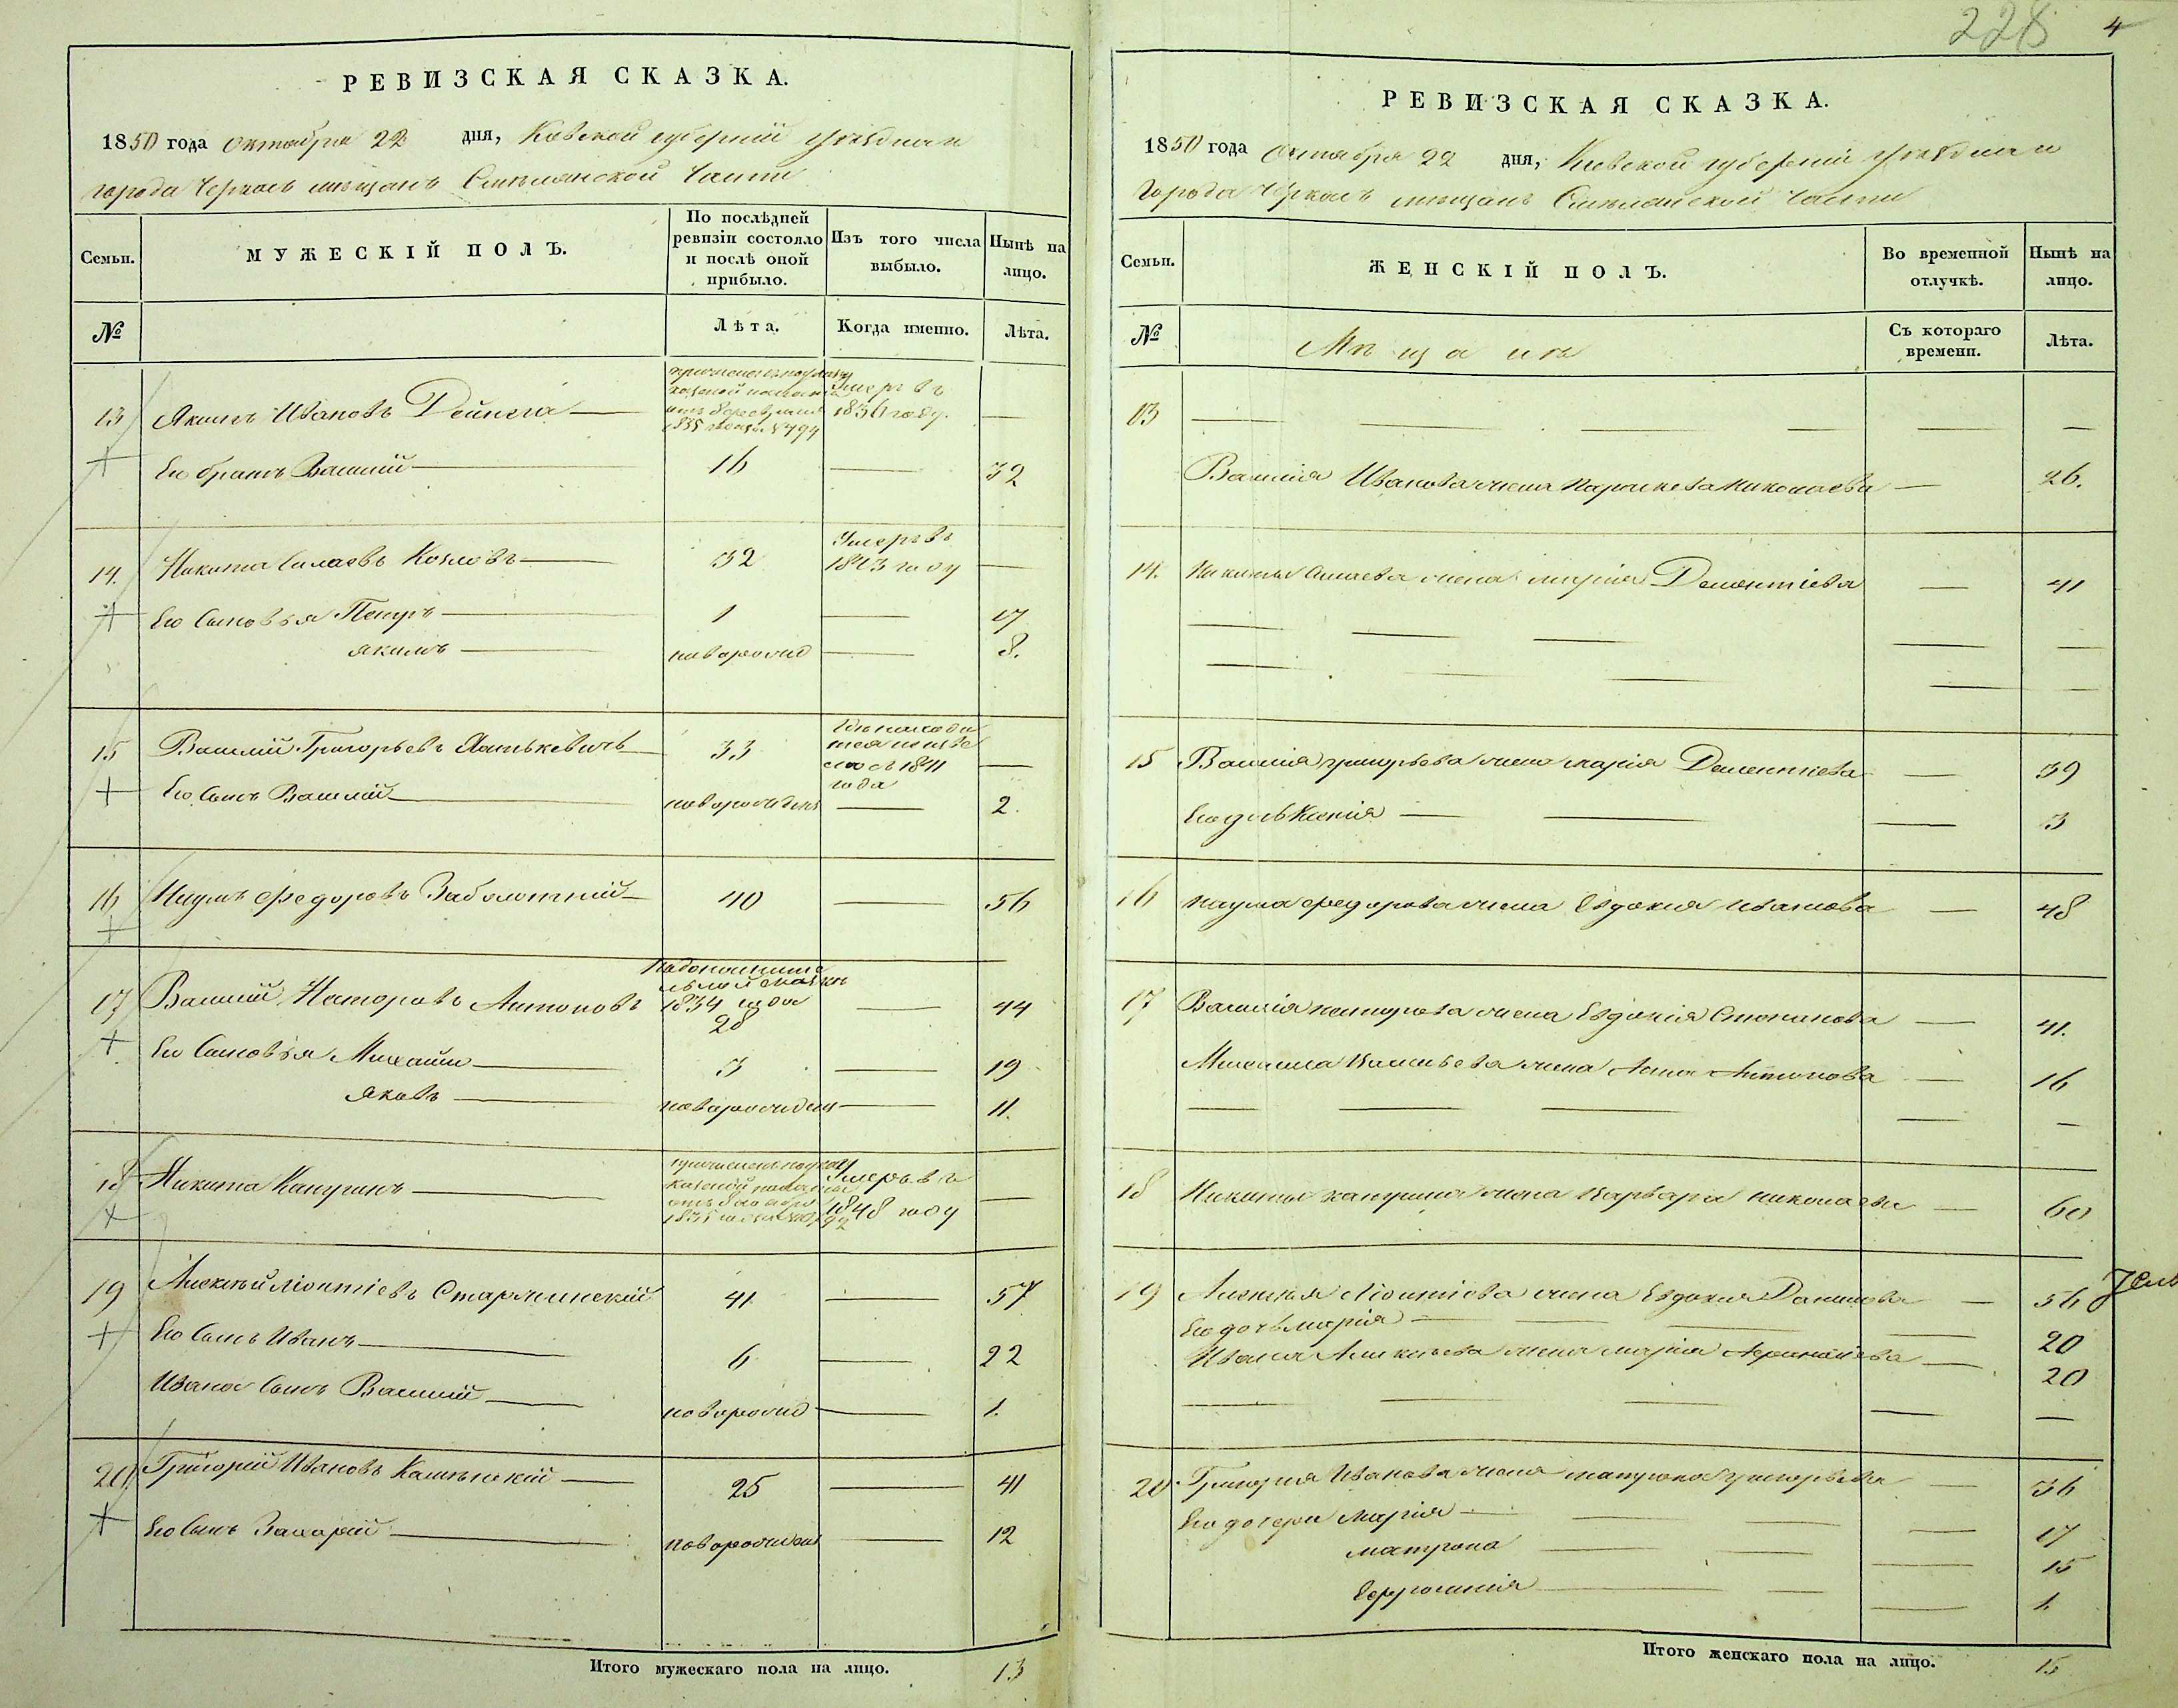 228
4
РЕВИЗСКАЯ СКАЗКА.
1850 года Октября 22 дня, Кіевской губерніи уѣзднаго
города Черкасъ мѣщанъ Смѣлянской части
Семьи.
МУЖЕСКІЙ ПОЛЪ.
По послѣдней ревизіи состояло и послѣ оной прибыло.
Изъ того числа выбыло.
Нынѣ на лицо.
№
Лѣта.
Когда именно.
Лѣта.
13 Якимъ Ивановъ Дейнега — Умеръ въ 1836 году. —
Его братъ Василій — 16 — 32
14. Никита Силаевъ Козловъ — 32 Умеръ въ 1843 году —
Его Сыновья Петръ — 1 — 17
Якимъ — новорожд — 8.
15 Василій Григорьевъ — 33 1841 года —
Его Сынъ Василій — новорожденъ — 2.
16 Наумъ Федоровъ Заболотный — 40 — 56
17 Василій Несторовъ Антоновъ 1834 года 28 — 44
Его Сыновья Михаилъ — 3 — 19
Яковъ — новорожденъ — 11.
18 Никита Капуринъ — Умеръ въ 1848 году —
19 Алексѣй Леонтіевъ Старжинскій 41 — 57
Его Сынъ Иванъ — 6 — 22
Ивана Сынъ Василій — новорожд — 1.
20 Григорій Ивановъ — 25 — 41
Его Сынъ Захарій — новорожденъ — 12
Итого мужескаго пола на лицо. 13
РЕВИЗСКАЯ СКАЗКА.
1850 года Октября 22 дня, Кіевской губерніи уѣзднаго
города Черкасъ мѣщанъ Смѣлянской части
Семьи.
ЖЕНСКІЙ ПОЛЪ.
Во временной отлучкѣ.
Нынѣ на лицо.
№
Мѣщане
Съ котораго времени.
Лѣта.
13 — — — — — —
Василія Иванова жена Параскева Николаева — 26.
14. Никиты Силаева жена Марія Дементіева — 41
— — — — —
— — — —
15 Василія Григорьева жена Марія Дементіева — 39
Его дочь Ксенія — — — 3
16 Наума Федорова жена Евдокія Иванова — 48
17 Василія Несторова жена Евдокія Степанова — 41.
Михаила Васильева жена Анна Антонова — 16
— — — — —
18 Никиты Капурина жена Варвара Николаева — 60
19 Алексѣя Леонтіева жена Евдокія Данилова — 56
Его дочь Марія — — — — 20
Ивана Алексѣева жена Марія Афанасіева — 20
— — — — —
20 Григорія Иванова жена Матрона Григорьева — 36
Его дочери Марія — — — — 17
Матрона — — — 15
Ефросинія — — — 1.
Итого женскаго пола на лицо. 15